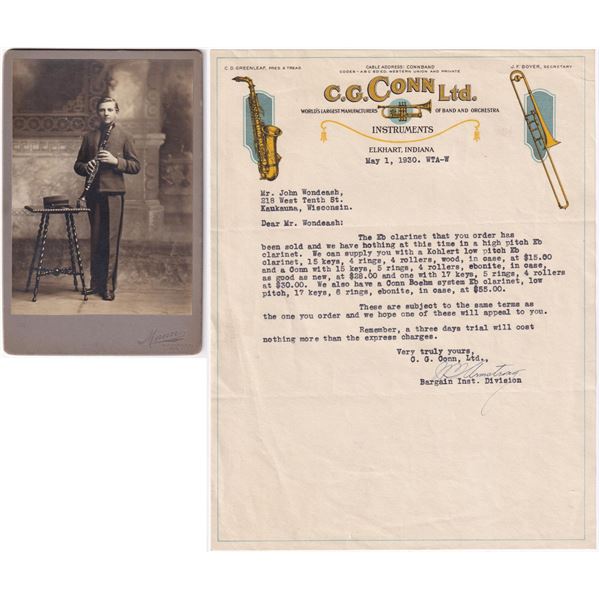 Mann
C. D. GREENLEAF, PRES. & TREAS.
CABLE ADDRESS: CONNBAND
CODES - ABC 5 ED. WESTERN UNION AND PRIVATE
J. F. BOYER, SECRETARY
C.G. CONN LTD.
WORLD'S LARGEST MANUFACTURERS OF BAND AND ORCHESTRA
INSTRUMENTS
ELKHART, INDIANA
May 1, 1930. WTA-W
Mr. John Wondeash,
218 West Tenth St.
Kaukauna, Wisconsin.
Dear Mr. Wondeash:
The Eb clarinet that you order has
been sold and we have nothing at this time in a high pitch Eb
clarinet. We can supply you with a Kohlert low pitch Eb
clarinet, 15 keys, 4 rings, 4 rollers, wood, in case, at $15.00
and a Conn with 15 keys, 5 rings, 4 rollers, ebonite, in case,
as good as new, at $28.00 and one with 17 keys, 5 rings, 4 rollers
at $30.00. We also have a Conn Boehm system Eb clarinet, low
pitch, 17 keys, 6 rings, ebonite, in case, at $55.00.
These are subject to the same terms as
the one you order and we hope one of these will appeal to you.
Remember, a three days trial will cost
nothing more than the express charges.
Very truly yours,
C. G. Conn, Ltd.,
Armstrong
Bargain Inst. Division